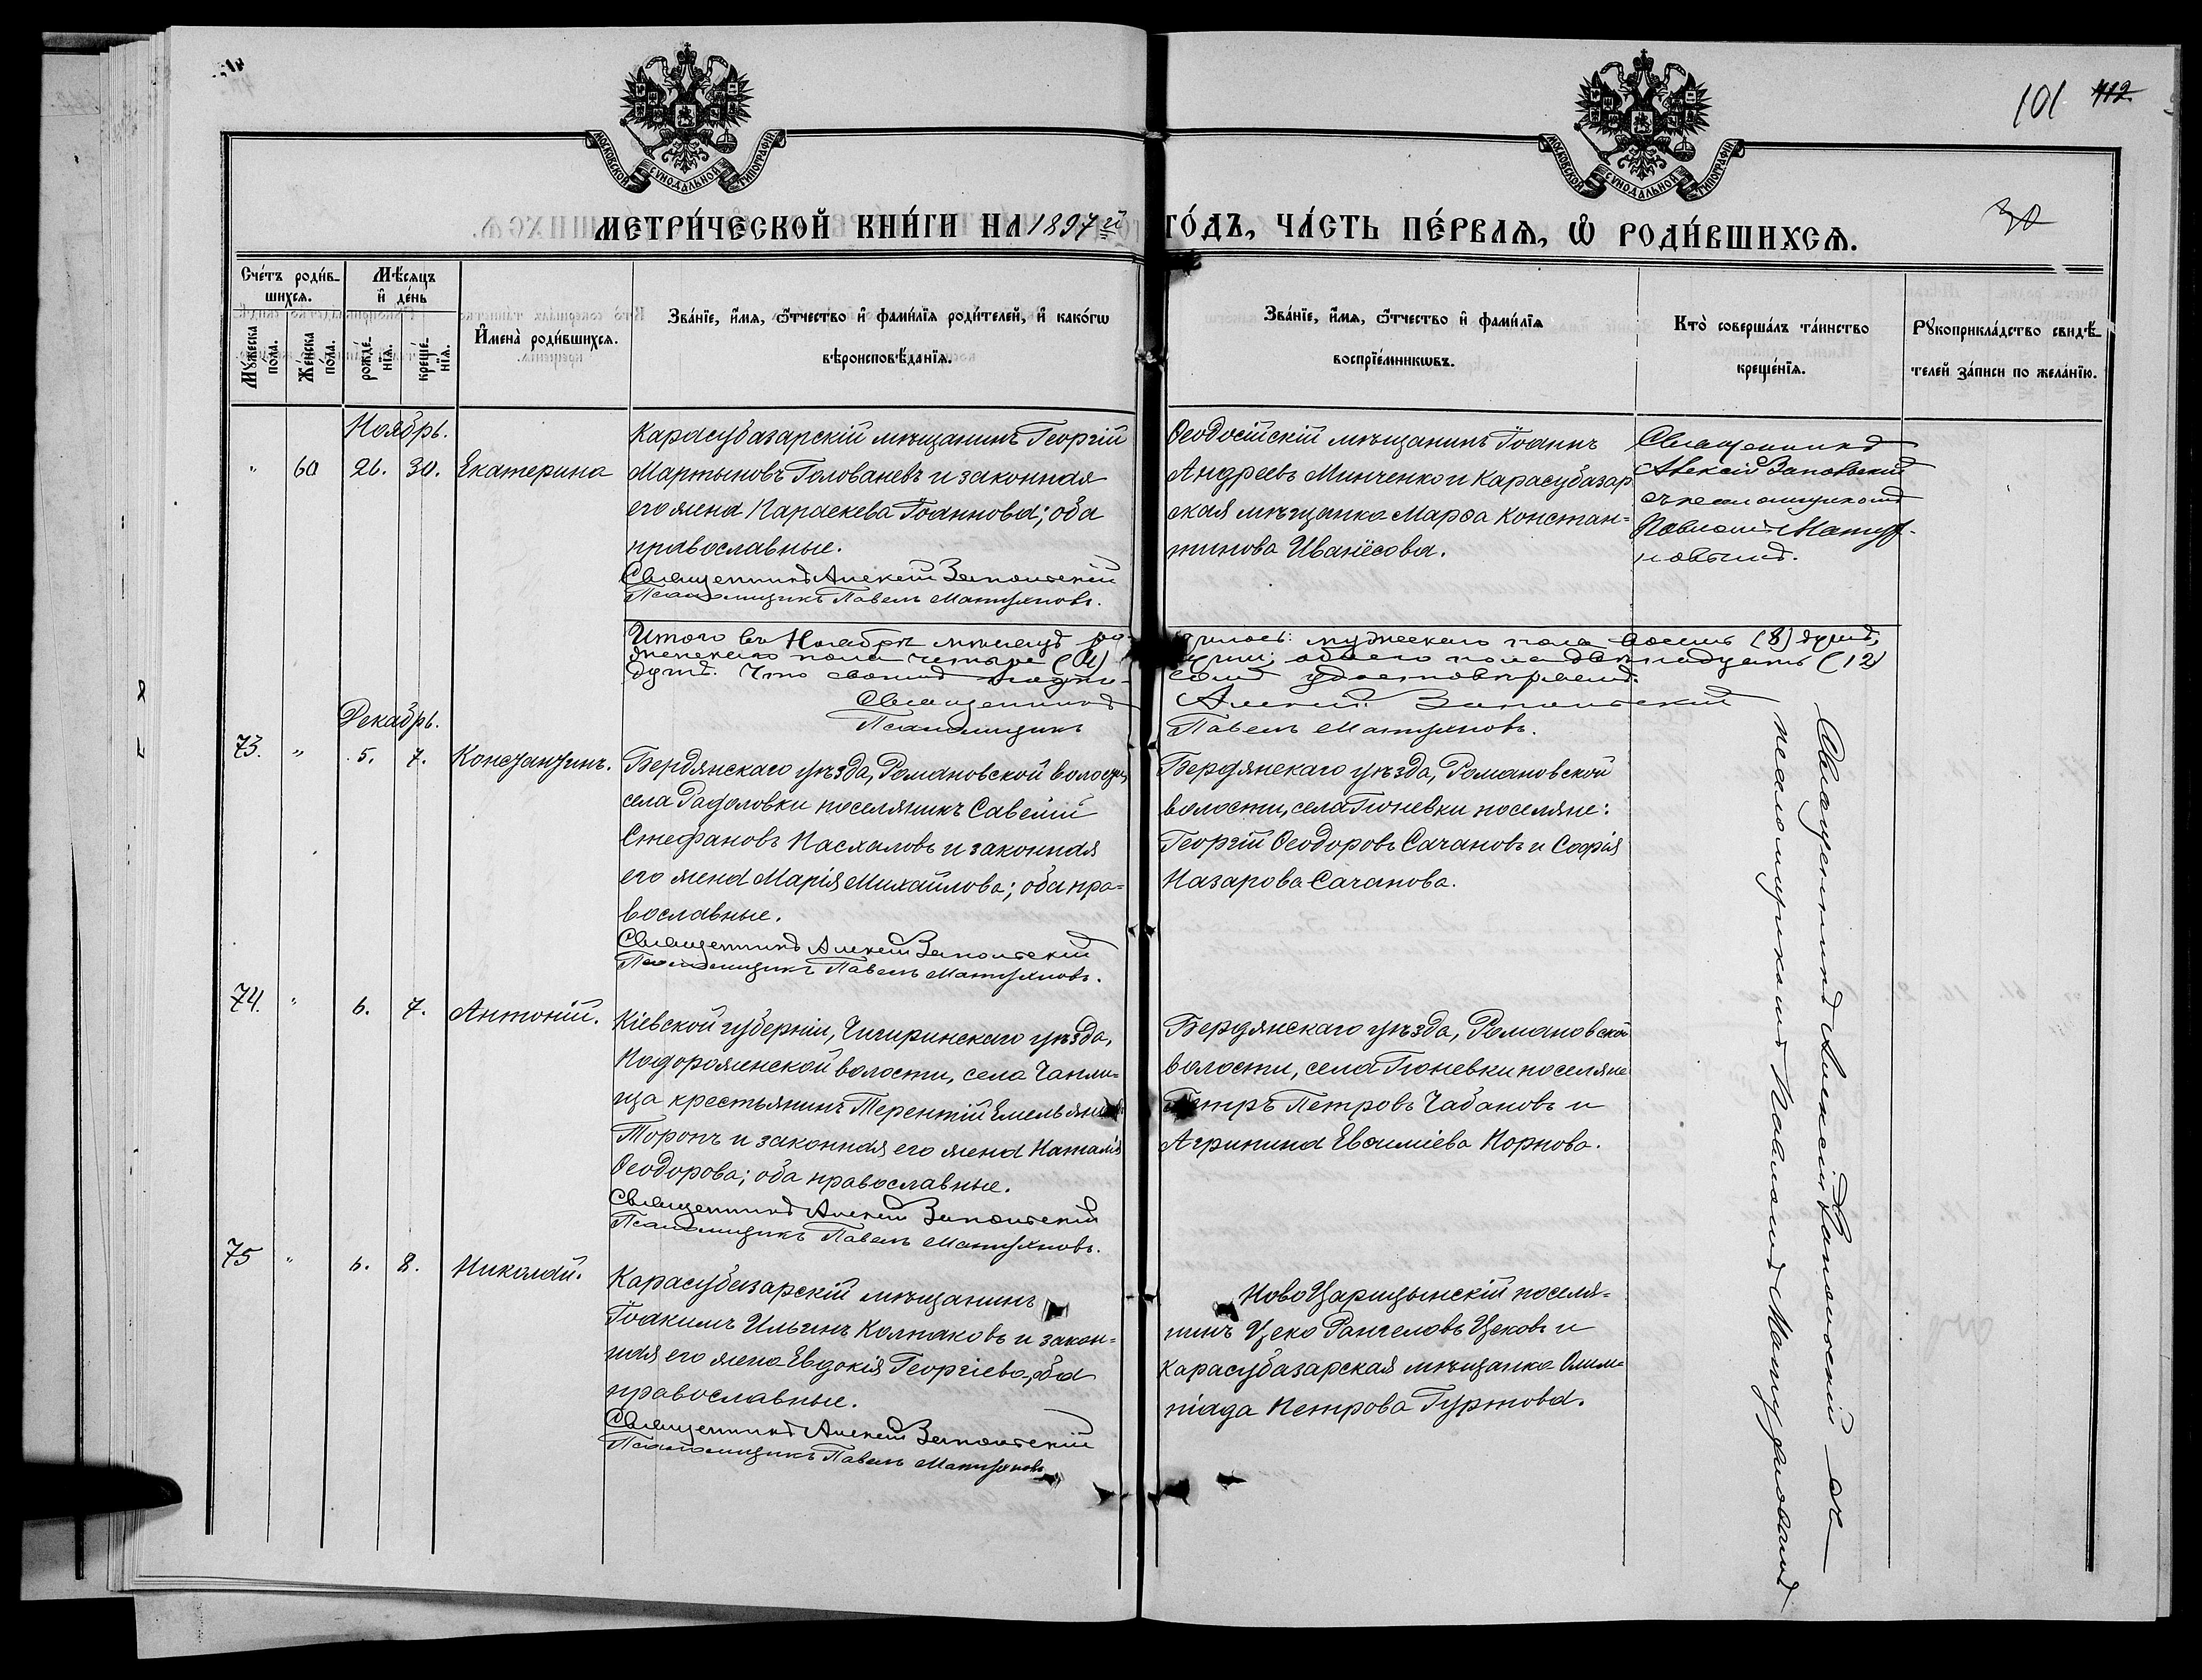 101 412
МОСКОВСКОЙ СѴНОДАЛЬНОЙ ТИПОГРАФІИ
МОСКОВСКОЙ СѴНОДАЛЬНОЙ ТИПОГРАФІИ
МЕТРИ́ЧЕСКОЙ КНИ́ГИ НА 1897 й ГО́ДЪ, ЧА́СТЬ ПЕ́РВАѦ, Ѡ҆ РОДИ́ВШИХСѦ.
Сче́тъ роди́в-
шихсѧ.
Мꙋжеска
пола.
Же́нска
по́ла.
Мѣ́сѧцъ
и҆ де́нь
рожде́-
нїѧ.
креще́-
нїѧ.
И҆мена̀ роди́вшихсѧ.
Зва́нїе, и҆́мѧ, ѻ҆́тчество и҆ фами́лїѧ роди́телей, и҆ како́гѡ
вѣроисповѣ́данїѧ.
Зва́нїе, и҆́мѧ, ѻ҆́тчество и҆ фами́лїѧ
воспрїе́мникѡвъ.
Кто̀ соверша́лъ та́инство
креще́нїѧ.
Рꙋкоприкла́дство свидѣ́-
телей за́писи по жела́нїю.
Ноябрь.
" 60 26. 30. Екатерина
Карасубазарскій мѣщанинъ Георгій
Мартыновъ Голованевъ и законная
его жена Параскева Іоаннова; оба
православные.
Священникъ Алексій Запольскій
Псаломщикъ Павелъ Матухновъ.
Ѳеодосійскій мѣщанинъ Іоаннъ
Андреевъ Минченко и Карасубазар
ская мѣщанка Марѳа Констан=
тинова Иванёсова.
Священникъ
Алексій Запольскій
съ псаломщикомъ
Павломъ Матух-
новымъ.
Итого въ Ноябрѣ мѣсяцѣ родилось: мужескаго пола восемь (8) душъ,
женскаго пола четыре (4) души; обоего пола двѣнадцать (12)
душъ. Что своимъ подписомъ удостовѣряемъ.
Священникъ Алексій Запольскій
Псаломщикъ Павелъ Матухновъ.
Декабрь.
73. " 5. 7. Константинъ.
Бердянскаго уѣзда, Романовской волости,
села Радоловки поселянинъ Савелій
Стефановъ Пасхаловъ и законная
его жена Марія Михайлова; оба пра=
вославные.
Священникъ Алексій Запольскій
Псаломщикъ Павелъ Матухновъ.
Бердянскаго уѣзда, Романовской
волости, села Гюневки поселяне:
Георгій Ѳеодоровъ Сачановъ и Софія
Назарова Сачанова.
74. " 6. 7. Антоній.
Кіевской губерніи, Чигиринскаго уѣзда,
Подорожненской волости, села Чапли=
ща крестьянинъ Терентій Емельяновъ
Торопъ и законная его жена Наталія
Ѳеодорова; оба православные.
Священникъ Алексій Запольскій
Псаломщикъ Павелъ Матухновъ.
Бердянскаго уѣзда, Романовской
волости, села Гюневки поселяне
Петръ Петровъ Чабановъ и
Агрипина Евѳиміева Корнова.
75 " 6. 8. Николай.
Карасубазарскій мѣщанинъ
Іоакимъ Ильинъ Колпаковъ и закон=
ная его жена Евдокія Георгіева, оба
православные.
Священникъ Алексій Запольскій
Псаломщикъ Павелъ Матухновъ
НовоЦарицынскій поселя=
нинъ Цеко Рангеловъ Цековъ и
Карасубазарская мѣщанка Олим=
піада Петрова Гуртова.
Священникъ Алексій Запольскій съ
псаломщикомъ Павломъ Матухновымъ